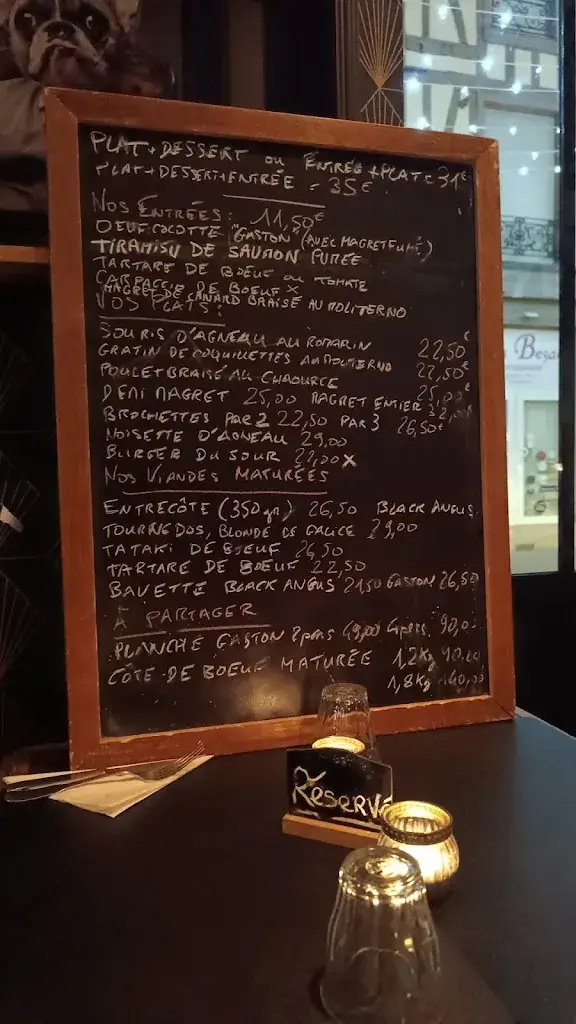 PLAT+DESSERT OU ENTRÉE+PLAT=31€
PLAT+DESSERT+ENTRÉE = 35€
NOS ENTRÉES: 11,50€
OEUF COCOTTE "GASTON" (AVEC MAGRET FUMÉ)
TIRAMISU DE SAUMON PURÉE
TARTARE DE BOEUF OU TOMATE
CARPACCIO DE BOEUF X
MAGRET DE CANARD BRAISÉ AU MOLITERNO
NOS PLATS:
SOURIS D'AGNEAU AU ROMARIN 22,50€
GRATIN DE COQUILLETTES AU MOLITERNO 22,50€
POULET BRAISÉ AU CHAOURCE 25,00€
DEMI MAGRET 25,00 MAGRET ENTIER 32,00
BROCHETTES PAR 2 22,50 PAR 3 26,50€
NOISETTE D'AGNEAU 29,00
BURGER DU JOUR 22,00 X
NOS VIANDES MATURÉES
ENTRECÔTE (350gr) 26,50 BLACK ANGUS
TOURNEDOS, BLONDE DE GALICE 29,00
TATAKI DE BOEUF 26,50
TARTARE DE BOEUF 22,50
BAVETTE BLACK ANGUS 21,50 GASTON 26,50
À PARTAGER
PLANCHE GASTON 2pers 49,00 4pers 90,00
CÔTE DE BOEUF MATURÉE 1,2Kg 90,00
1,8Kg 140,00
Réservé
Beza